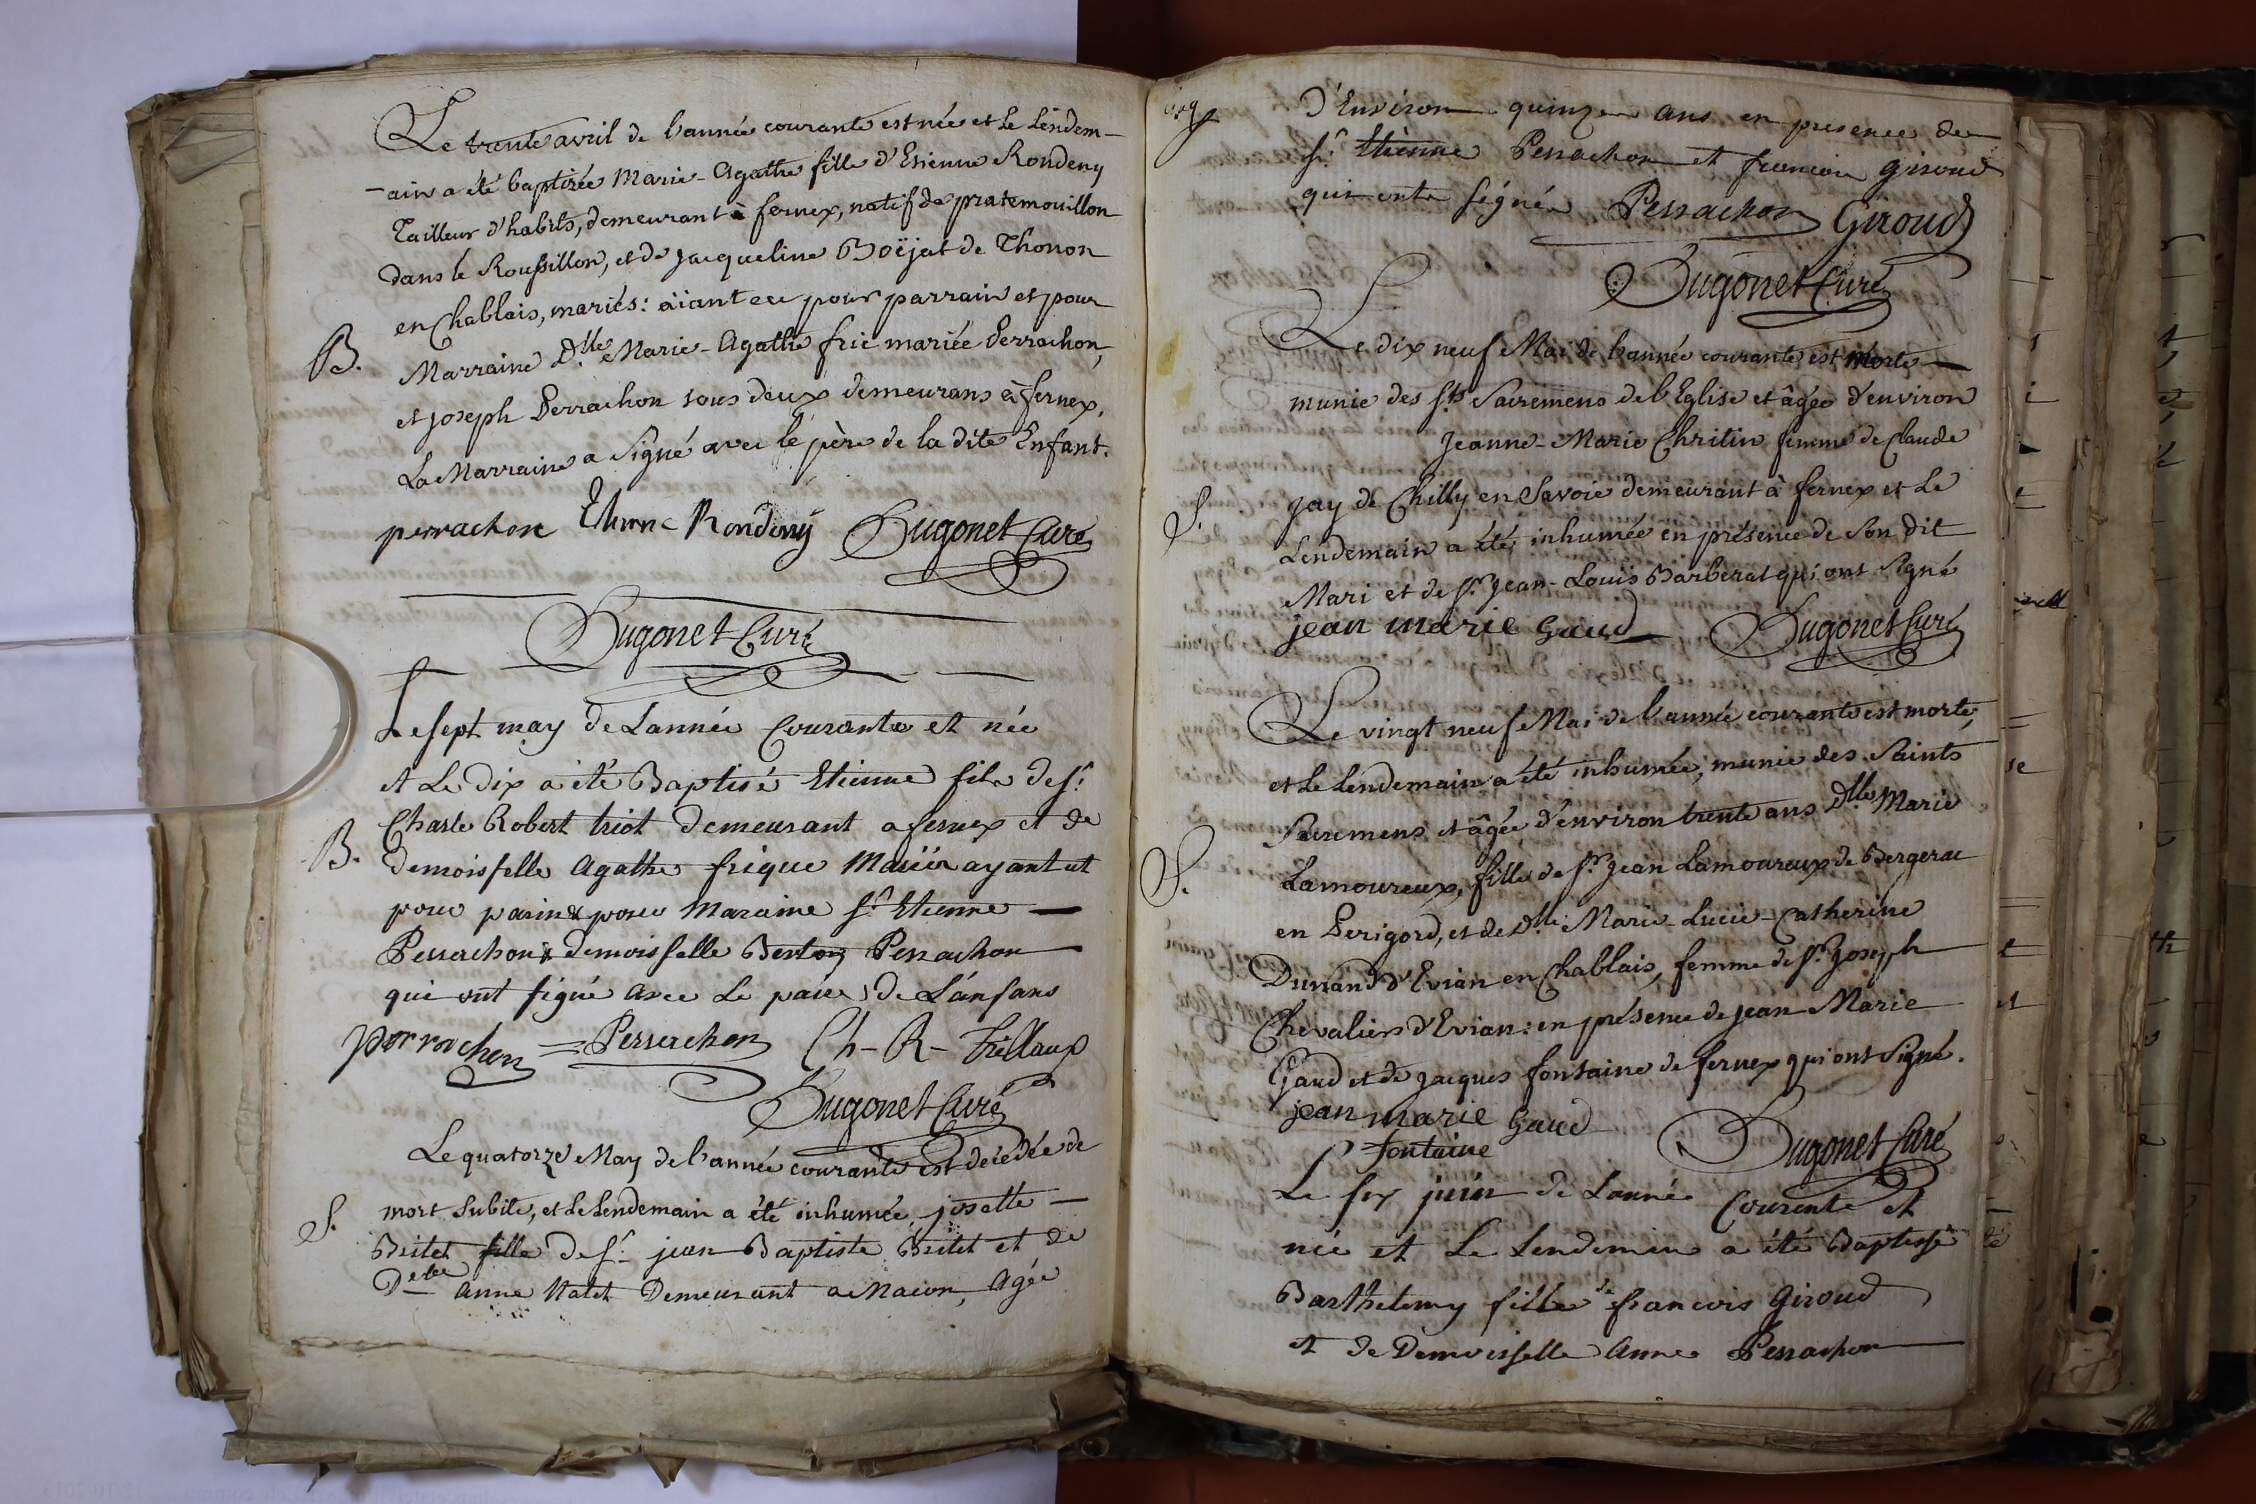 Le trente avril de l'année courante est née et le lendem-
-ain a été baptizée Marie-Agathe fille d'Etienne Rondeny
Tailleur d'habits, demeurant à fernex, natif de pratemouillon
dans le Roussillon, et de Jacqueline Boëjat de Thonon
en Chablais, mariés: aiant eu pour parrain et pour
B.
Marraine D.lle Marie-Agathe fric mariée Perrachon,
et joseph Perrachon tous deux demeurans à fernex.
La Marraine a signé avec le père de la dite Enfant.
perrachon Etienne Rondeny Hugonet Curé
Hugonet Curé
Le sept may de Lannée Courante et née
et Le dix a été Baptisé Etienne fils de s.r
Charle Robert triot demeurant a fernex et de
B.
demoisselle Agathe frique Mariér ayant ut
pour parin & pour Maraine s.r Etienne
Perrachon & demoisselle Berton Perrachon
qui ont signé avec Le paire de L'ansans
perrachon = Perrachon Ch-R-Trillaux
Hugonet Curé
Le quatorze May de l'année courante est décédée de
S.
mort subite, et le lendemain a été inhumée josette
Britet fille de s.r jean Baptiste Britet et de
D.elle Anne Natet Demeurant a Macon, Agée
d'Environ quinze ans en presence de
s.r Etienne Perrachon et francois giroud
qui ont signé Perrachon Giroud
Hugonet Curé
Le dix neuf Mai de l'année courante est morte
munie des s.ts Sacremens de l'Eglise et âgée d'environ
Jeanne-Marie Chritin femme de Claude
S.
Jay de Chilly en Savoie demeurant à fernex et le
Lendemain a été inhumée en présence de son dit
Mari et de s.r Jean-Louis Barberat qui ont signé
jean marie Gaud Hugonet Curé
Le vingt neuf Mai de l'année courante est morte,
et le lendemain a été inhumée, munie des Saints
Sacremens et âgée d'environ trente ans D.lle Marie
S.
Lamoureux, fille de s.r Jean Lamoureux de Bergerac
en Perigord, et de D.lle Marie-Lucie-Catherine
Dunand d'Evian en Chablais, femme de s.r Joseph
Chevalier d'Evian: en présence de jean Marie
Gaud et de jacques fontaine de fernex qui ont signé.
jean marie Gaud
fontaine Hugonet Curé
Le six juin de Lannée Courente et
née et Le Lendemin a été Baptissé
Barthelemy fille de francois Giroud
et de Demoisselle Anne Perrachon